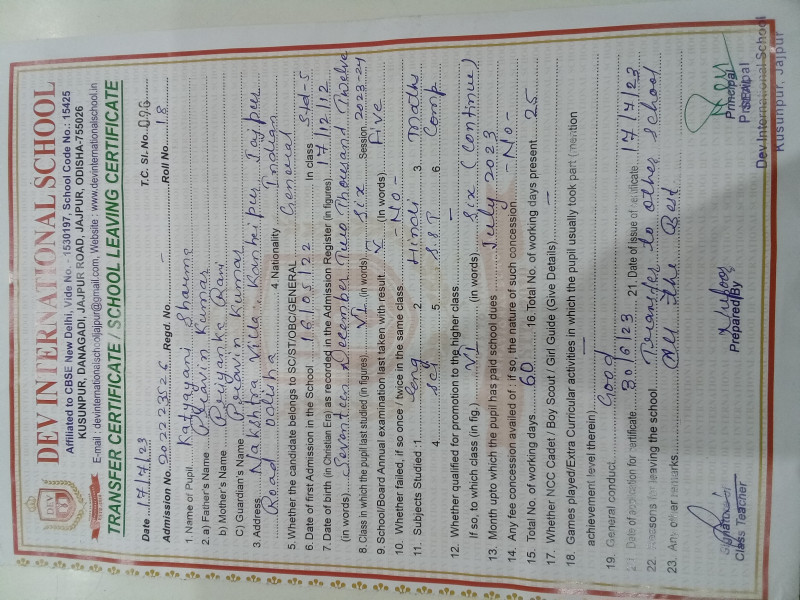 DEV INTERNATIONAL SCHOOL
Affiliated to CBSE New Delhi, Vide No.- 1530197, School Code No.: 15425
KUSUNPUR, DANAGADI, JAJPUR ROAD, JAJPUR, ODISHA-755026
E-mail : devinternationalschooljajpur@gmail.com, Website : www.devinternationalschool.in
TRANSFER CERTIFICATE / SCHOOL LEAVING CERTIFICATE
DEV
Date 17/7/23 T.C. Sl. No. 090
Admission No. 202223526 Regd. No. - Roll No. 18
1. Name of Pupil. Katyayani Sharma
2. a) Father's Name Pravin Kumar
b) Mother's Name Priyanka Rani
C) Guardian's Name Pravin Kumar
3. Address Nakshtra Villa, Kanheipur, Jajpur
Road Odisha 4. Nationality Indian
5. Whether the candidate belongs to SC/ST/OBC/GENERAL General
6. Date of first Admission in the School 16/05/22 In class Std-5
7. Date of birth (in Christian Era) as recorded in the Admission Register (in figures) 17/12/12
(in words) Seventeen December Two Thousand Twelve
8. Class in which the pupil last studied (in figures) VI (in words) Six Session 2023-24
9. School/Board Annual examination last taken with result V (In words) Five
10. Whether failed, if so once / twice in the same class -No-
11. Subjects Studied 1. Eng 2. Hindi 3. Maths
4. Sci 5. S.ST 6. Comp
12. Whether qualified for promotion to the higher class -
If so, to which class (in fig.) VI (in words) Six (Continue)
13. Month upto which the pupil has paid school dues July 2023
14. Any fee concession availed of : if so, the nature of such concession -No-
15. Total No. of working days 60 16. Total No. of working days present 25
17. Whether NCC Cadet / Boy Scout / Girl Guide (Give Details) -
18. Games played/Extra Curricular activities in which the pupil usually took part (mention
achievement level therein) -
19. General conduct Good
Date of application for certificate 30/6/23 21. Date of issue of certificate 17/7/23
22. Reasons for leaving the school Transfer to other school
23. Any other remarks All the Best
Signature of
Class Teacher
Prepared By
Principal
Principal
Dev International School
Kusunpur, Jajpur